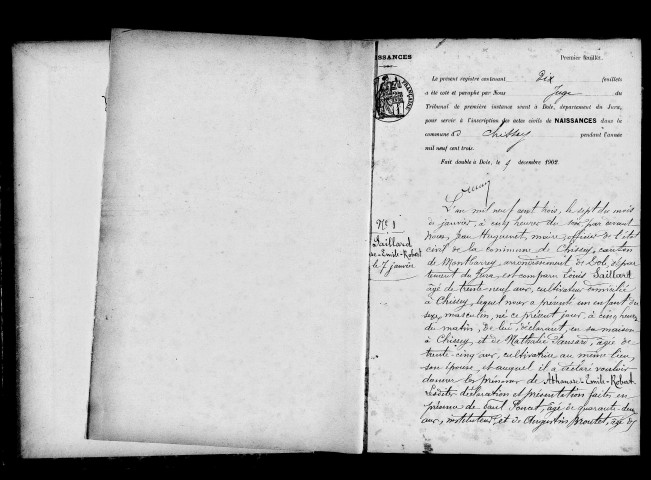 NAISSANCES
Premier feuillet.
Le présent registre contenant Dix feuillets
a été coté et paraphé par Nous Juge du
Tribunal de première instance séant à Dole, département du Jura,
pour servir à l'inscription des actes civils de NAISSANCES dans la
commune de Chissey pendant l'année
mil neuf cent trois.
Fait double à Dole, le 9 décembre 1902.
N° 1
Saillard
Emile-Robert
le 7 janvier
L'an mil neuf cent trois, le sept du mois
de janvier, à cinq heures du soir, par devant
Nous, Jean Huguenet, maire, officier de l'état
civil de la commune de Chissey, canton
de Montbarrey, arrondissement de Dole, dépar-
tement du Jura, est comparu Louis Saillard
âgé de trente-neuf ans, cultivateur domicilié
à Chissey, lequel nous a présenté un enfant du
sexe masculin, né ce présent jour, à cinq heures
du matin, de lui déclarant, en sa maison
à Chissey, et de Nathalie âgée de
trente-cinq ans, cultivatrice au même lieu,
son épouse, et auquel il a déclaré vouloir
donner les prénoms de Athanase-Emile-Robert
Lesdites déclaration et présentation faites en
présence de Paul âgé de quarante-deux
ans, instituteur, et de Augustin Broutet, âgé de